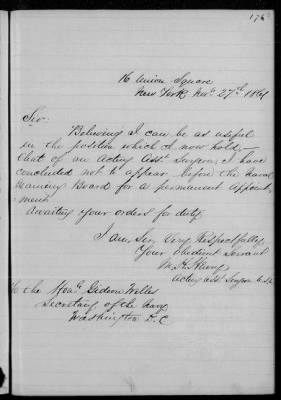 176
16 Union Square
New York, Nov. 27th 1861
Sir.
Believing I can be as useful
in the position which I now hold,
that of an Acting Asst Surgeon, I have
concluded not to appear before the Naval
Examining Board for a permanent Appoint-
ment
Awaiting your orders for duty.
I am, Sir, Very Respectfully
Your Obedient Servant
Acting Asst Surgeon U.S.N.
To the Hon. Gideon Welles
Secretary of the Navy
Washington D.C